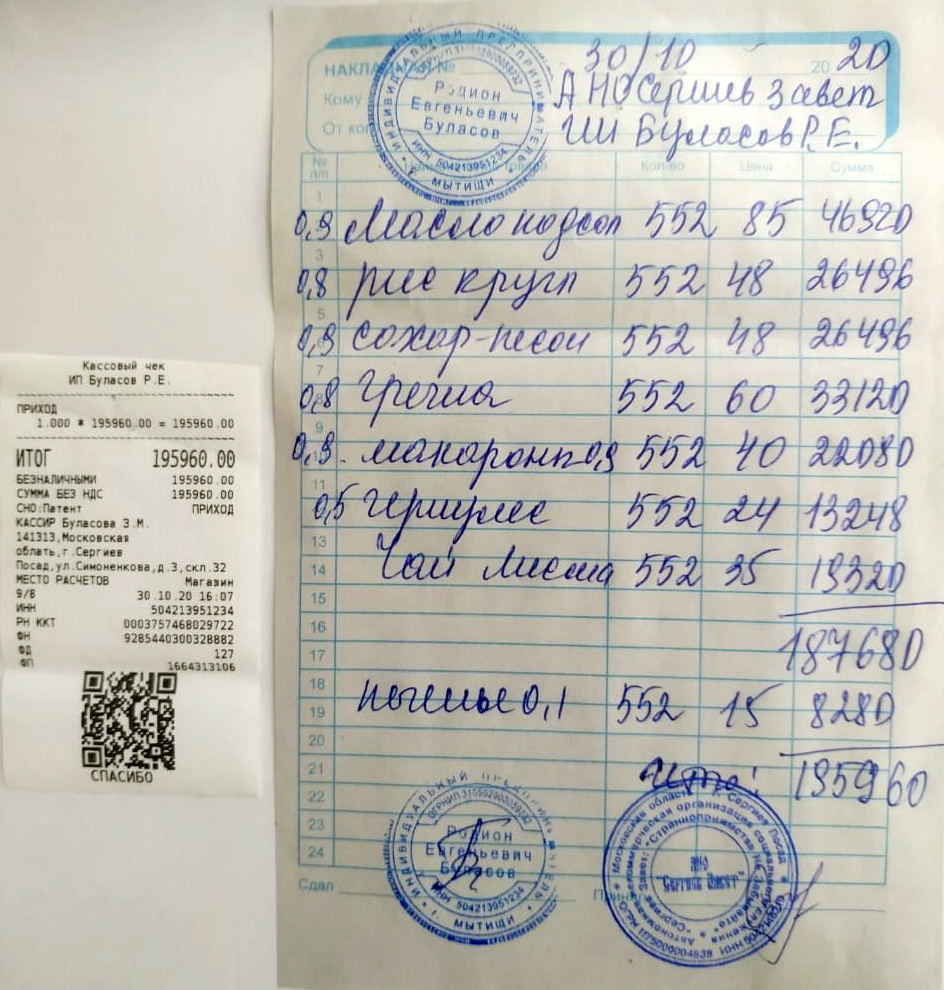 Кассовый чек
ИП Буласов Р.Е.
ПРИХОД
1.000 * 195960.00 = 195960.00
ИТОГ 195960.00
БЕЗНАЛИЧНЫМИ 195960.00
СУММА БЕЗ НДС 195960.00
СНО:Патент ПРИХОД
КАССИР Буласова З.М.
141313,Московская
облать,г.Сергиев
Посад,ул.Симоненкова,д.3,скл.32
МЕСТО РАСЧЕТОВ Магазин
9/8 30.10.20 16:07
ИНН 504213951234
РН ККТ 0003757468029722
ФН 9285440300328882
ФД 127
ФП 1664313106
СПАСИБО
НАКЛАДНАЯ № 30/10 2020
Кому АНО Сергиев Завет
От ко ИП Буласов Р.Е.
ИНДИВИДУАЛЬНЫЙ ПРЕДПРИНИМАТЕЛЬ
Родион
Евгеньевич
Буласов
ИНН 504213951234
г. МЫТИЩИ
№ п/п Кол-во Цена Сумма
1
0,9 Масло подсол 552 85 46920
3
0,8 рис кругл 552 48 26496
5
0,9 сохор-песок 552 48 26496
7
0,8 Гречка 552 60 33120
9
0,9. макарон 552 40 22080
11
0,5 Геркулес 552 24 13248
13
14 Чай Лисма 552 35 19320
15
16
17 187680
18
19 печенье 0,1 552 15 8280
20
21 Итого: 195960
22
23
24
Сдал
ИНДИВИДУАЛЬНЫЙ ПРЕДПРИН
Родион
Евгеньевич
Буласов
ИНН 504213951234
г. МЫТИЩИ
Московская область г. Сергиев Посад
АНО
"Сергиев Завет"